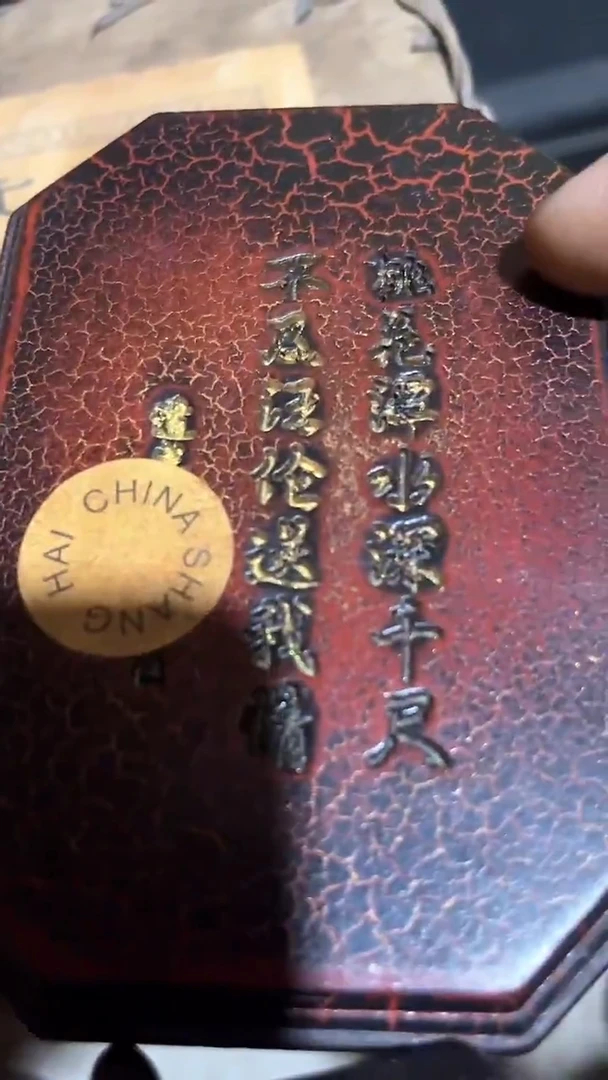 桃花潭水深千尺
不及汪伦送我情
CHINA SHANG HAI